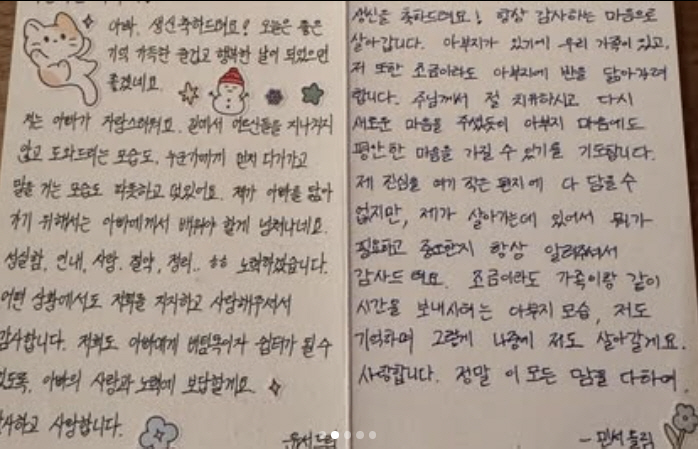 아빠, 생신 축하드려요! 오늘은 좋은
기억 가득한 즐겁고 행복한 날이 되었으면
좋겠네요.
저는 아빠가 자랑스러워요. 길에서 어르신들을 지나치지
않고 도와드리는 모습도, 누군가에게 먼저 다가가고
말을 거는 모습도 따뜻하고 멋있어요. 제가 아빠를 닮아
가기 위해서는 아빠에게서 배워야 할게 넘쳐나네요.
성실함, 인내, 사랑, 절약, 정리.. ㅎㅎ 노력하겠습니다.
어떤 상황에서도 저희를 지지하고 사랑해주셔서
감사합니다. 저희도 아빠에게 버팀목이자 쉼터가 될 수
있도록, 아빠의 사랑과 노력에 보답할게요.
감사하고 사랑합니다.
윤서 드림
생신을 축하드려요! 항상 감사하는 마음으로
살아갑니다. 아부지가 있기에 우리 가족이 있고,
저 또한 조금이라도 아부지에 반을 닮아가려
합니다. 주님께서 절 치유하시고 다시
새로운 마음을 주셨듯이 아부지 마음에도
평안한 마음을 가질 수 있기를 기도합니다.
제 진심을 여기 작은 편지에 다 담을 수
없지만, 제가 살아가는데 있어서 뭐가
필요하고 중요한지 항상 알려주셔서
감사드려요. 조금이라도 가족이랑 같이
시간을 보내시려는 아부지 모습, 저도
기억하며 그렇게 나중에 저도 살아갈게요.
사랑합니다. 정말 이 모든 맘을 다하여.
- 민서 드림